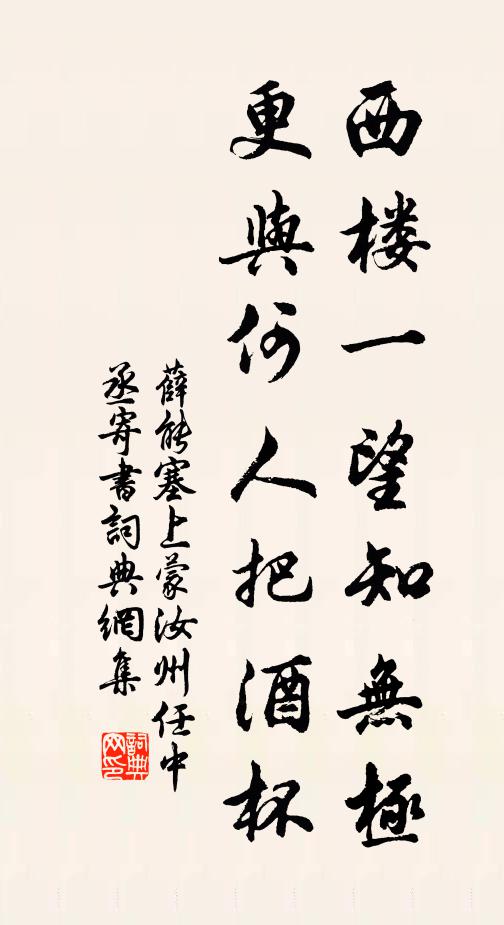 西楼一望知無極
更與何人把酒杯
薛能塞上蒙汝州任中
丞寄書詞典網集
詞典网印